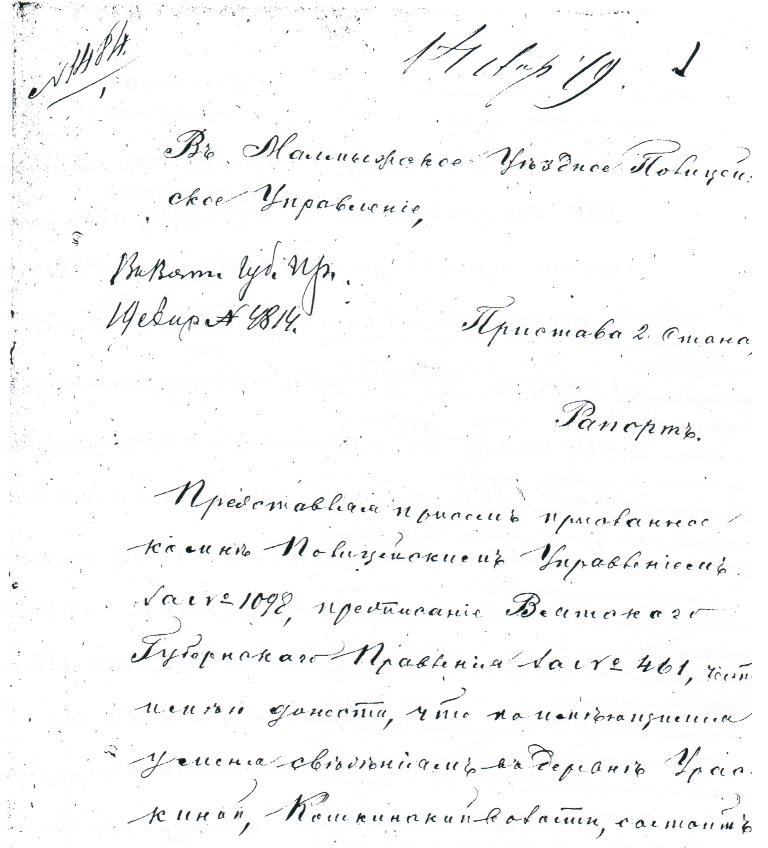 № 1484.
1
Въ Малмыжское Уѣздное Полицей-
ское Управленіе,
Губ. Пр.
№ 4814.
Пристава 2. Стана,
Рапортъ.
Представляя присемъ присланное
комнѣ Полицейскимъ Управленіемъ
за № 1098, предписаніе Вятскаго
Губернскаго Правленія за № 461, честь
имѣю донести, что по имѣющимся
уменя свѣдѣніямъ въ деревнѣ Урас-
киной, Кошкинской волости, состоитъ